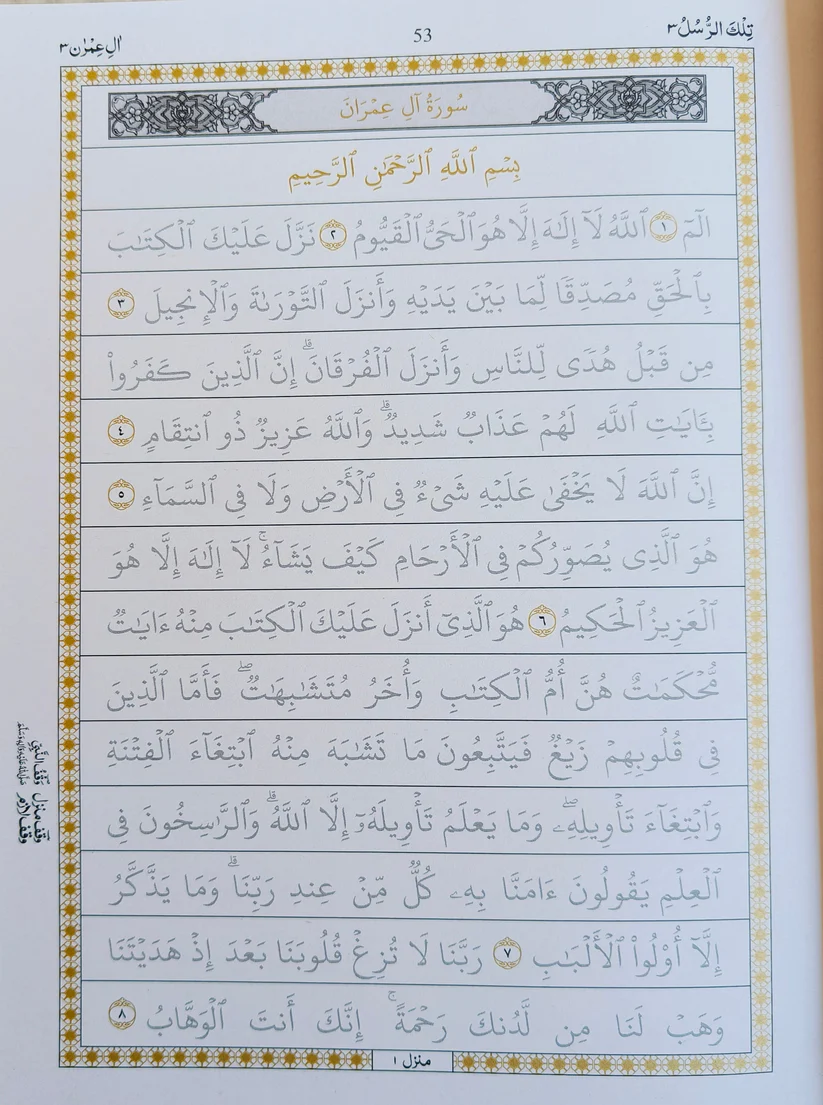 تِلْكَ الرُّسُلُ ٣
53
اٰلِ عِمْرٰن ٣
سُورَةُ آلِ عِمْرَانَ
بِسْمِ ٱللَّهِ ٱلرَّحْمَٰنِ ٱلرَّحِيمِ
الٓمٓ ١ ٱللَّهُ لَآ إِلَٰهَ إِلَّا هُوَ ٱلْحَىُّ ٱلْقَيُّومُ ٢ نَزَّلَ عَلَيْكَ ٱلْكِتَٰبَ
بِٱلْحَقِّ مُصَدِّقًا لِّمَا بَيْنَ يَدَيْهِ وَأَنزَلَ ٱلتَّوْرَىٰةَ وَٱلْإِنجِيلَ ٣
مِن قَبْلُ هُدًى لِّلنَّاسِ وَأَنزَلَ ٱلْفُرْقَانَ ۗ إِنَّ ٱلَّذِينَ كَفَرُوا۟
بِـَٔايَٰتِ ٱللَّهِ لَهُمْ عَذَابٌ شَدِيدٌ ۗ وَٱللَّهُ عَزِيزٌ ذُو ٱنتِقَامٍ ٤
إِنَّ ٱللَّهَ لَا يَخْفَىٰ عَلَيْهِ شَىْءٌ فِى ٱلْأَرْضِ وَلَا فِى ٱلسَّمَآءِ ٥
هُوَ ٱلَّذِى يُصَوِّرُكُمْ فِى ٱلْأَرْحَامِ كَيْفَ يَشَآءُ ۚ لَآ إِلَٰهَ إِلَّا هُوَ
ٱلْعَزِيزُ ٱلْحَكِيمُ ٦ هُوَ ٱلَّذِىٓ أَنزَلَ عَلَيْكَ ٱلْكِتَٰبَ مِنْهُ ءَايَٰتٌ
مُّحْكَمَٰتٌ هُنَّ أُمُّ ٱلْكِتَٰبِ وَأُخَرُ مُتَشَٰبِهَٰتٌ ۖ فَأَمَّا ٱلَّذِينَ
فِى قُلُوبِهِمْ زَيْغٌ فَيَتَّبِعُونَ مَا تَشَٰبَهَ مِنْهُ ٱبْتِغَآءَ ٱلْفِتْنَةِ
وَٱبْتِغَآءَ تَأْوِيلِهِۦ ۖ وَمَا يَعْلَمُ تَأْوِيلَهُۥٓ إِلَّا ٱللَّهُ ۗ وَٱلرَّٰسِخُونَ فِى
ٱلْعِلْمِ يَقُولُونَ ءَامَنَّا بِهِۦ كُلٌّ مِّنْ عِندِ رَبِّنَا ۗ وَمَا يَذَّكَّرُ
إِلَّآ أُو۟لُوا۟ ٱلْأَلْبَٰبِ ٧ رَبَّنَا لَا تُزِغْ قُلُوبَنَا بَعْدَ إِذْ هَدَيْتَنَا
وَهَبْ لَنَا مِن لَّدُنكَ رَحْمَةً ۚ إِنَّكَ أَنتَ ٱلْوَهَّابُ ٨
منزل ١
وَقْفُ النَّبِيِّ
وقف منزل
وقف لازم